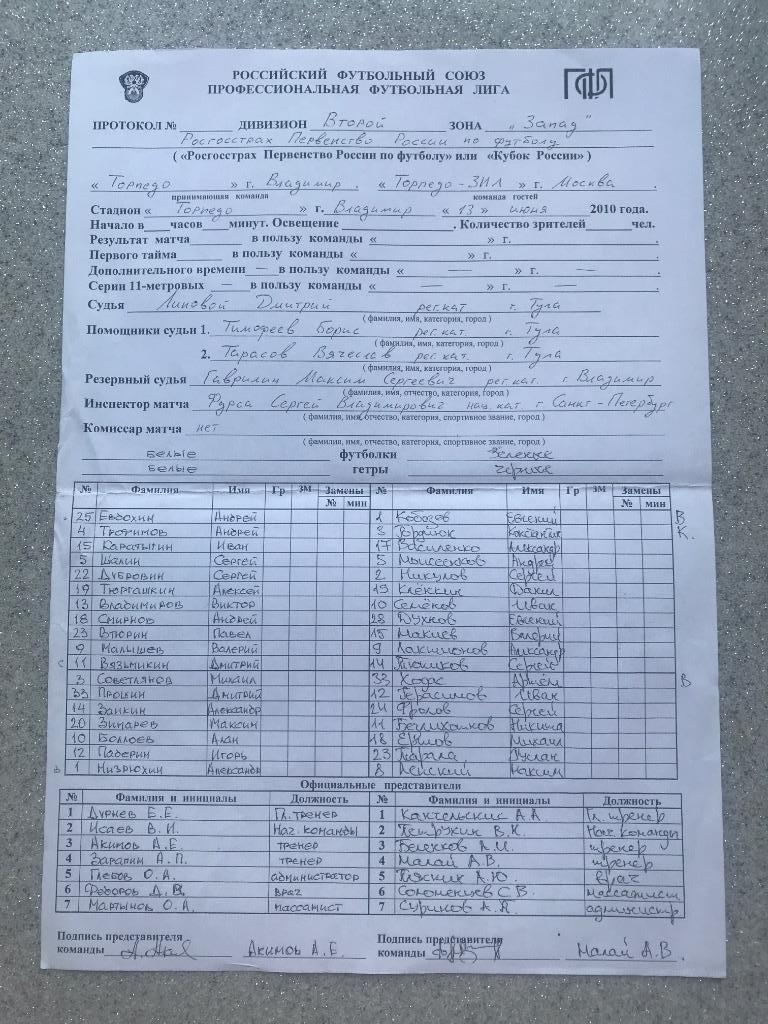 РОССИЙСКИЙ ФУТБОЛЬНЫЙ СОЮЗ
ПРОФЕССИОНАЛЬНАЯ ФУТБОЛЬНАЯ ЛИГА
ПФЛ
ПРОТОКОЛ № ДИВИЗИОН Второй ЗОНА "Запад"
Росгосстрах Первенство России по футболу
( «Росгосстрах Первенство России по футболу» или «Кубок России» )
« Торпедо » г. Владимир . « Торпедо-ЗИЛ » г. Москва .
принимающая команда команда гостей
Стадион « Торпедо » г. Владимир « 13 » июня 2010 года.
Начало в часов минут. Освещение . Количество зрителей чел.
Результат матча в пользу команды « » г. .
Первого тайма в пользу команды « » г. .
Дополнительного времени — в пользу команды « — » г. — .
Серии 11-метровых — в пользу команды « — » г. — .
Судья Липовой Дмитрий рег.кат г. Тула
( фамилия, имя, категория, город )
Помощники судьи 1. Тимофеев Борис рег.кат. г. Тула
( фамилия, имя, категория, город )
2. Тарасов Вячеслав рег.кат. г. Тула
( фамилия, имя, категория, город )
Резервный судья Гаврилин Максим Сергеевич рег.кат. г Владимир
( фамилия, имя, отчество, категория, город )
Инспектор матча Фурса Сергей Владимирович нац.кат. г Санкт-Петербург
( фамилия, имя, отчество, категория, спортивное звание, город )
Комиссар матча нет
( фамилия, имя, отчество, категория, спортивное звание, город )
белые футболки зеленые
белые гетры черные
№ Фамилия Имя Гр ЗМ Замены № Фамилия Имя Гр ЗМ Замены
№ мин № мин
25 Евдохин Андрей 1 Кобозев Евгений В
4 Трофимов Андрей 3 Гордиюк Константин К.
15 Каратыгин Иван 17 Василенко Александр
5 Шалин Сергей 5 Моисеенков Андрей
22 Дубровин Сергей 2 Никулов Сергей
19 Тюргашкин Алексей 19 Данил
13 Владимиров Виктор 10 Семёнов Иван
18 Смирнов Андрей 28 Духнов Евгений
23 Втюрин Павел 15 Макиев Валерий
9 Малышев Валерий 9 Лактионов Александр
с 11 Вязьмикин Дмитрий 14 Сергей
3 Светлянов Михаил 33 Артём В
33 Прошин Дмитрий 12 Герасимов Иван
14 Заикин Александр 24 Фролов Сергей
20 Зинарев Максим 11 Никита
10 Боллоев Алан 18 Ершов Михаил
12 Паберин Игорь 23 Руслан
в 1 Низрюхин Александр 8 Ленский Максим
Официальные представители
№ Фамилия и инициалы Должность № Фамилия и инициалы Должность
1 Дурнев Е.Е. Гл.тренер 1 А.А. Гл. тренер
2 Исаев В.И. Нач.команды 2 Петружин В.Н. Нач.команды
3 Акимов А.Е. тренер 3 Беленков А.И. тренер
4 Зарапин А.П. тренер 4 Малай А.В. тренер
5 Глебов О.А. администратор 5 А.Ю. врач
6 Федоров Д.В. врач 6 Соломенцев С.В. массажист
7 Мартынов О.А. массажист 7 Суринов А.А. администр
Подпись представителя Подпись представителя
команды Акимов А.Е. команды Малай А.В.